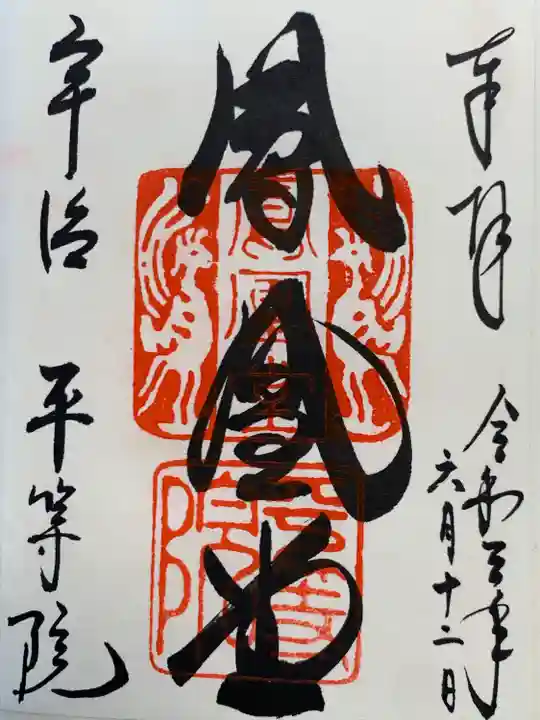 奉拝
令和三年
六月十二日
鳳凰堂
鳳凰堂
宇治 平等院